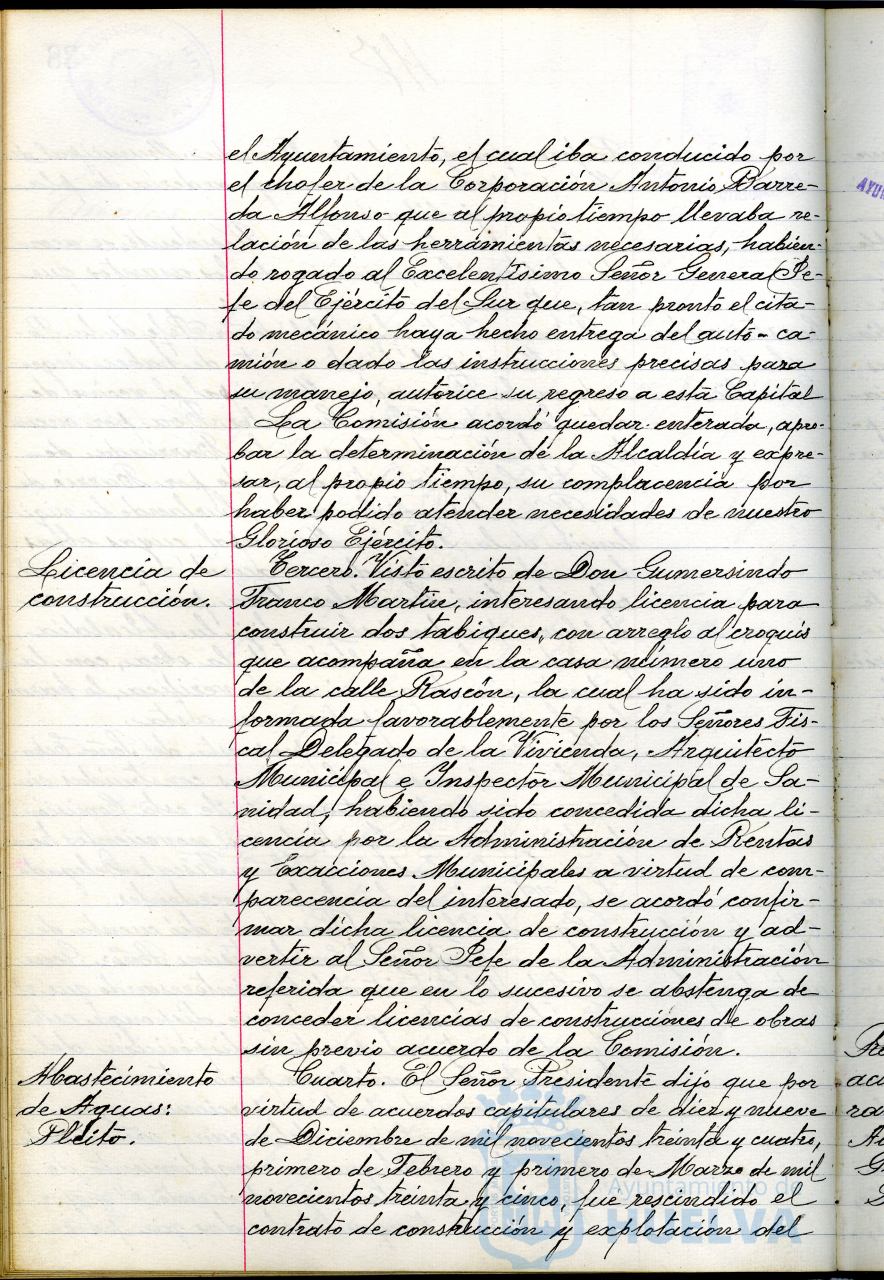 el Ayuntamiento, el cual iba conducido por
el chofer de la Corporación Antonio Barre-
da Alfonso que al propio tiempo llevaba re-
lación de las herramientas necesarias, habien-
do rogado al Excelentísimo Señor General Je-
fe del Ejército del Sur que, tan pronto el cita-
do mecánico haya hecho entrega del auto-ca-
mión o dado las instrucciones precisas para
su manejo, autorice su regreso a esta Capital
La Comisión acordó quedar enterada, apro-
bar la determinación de la Alcaldía y expre-
sar, al propio tiempo, su complacencia por
haber podido atender necesidades de nuestro
Glorioso Ejército.
Licencia de
construcción.
Tercero. Visto escrito de Don Gumersindo
Franco Martin, interesando licencia para
construir dos tabiques, con arreglo al croquis
que acompaña en la casa número uno
de la calle Rascón, la cual ha sido in-
formada favorablemente por los Señores Fis-
cal Delegado de la Vivienda, Arquitecto
Municipal e Inspector Municipal de Sa-
nidad, habiendo sido concedida dicha li-
cencia por la Administración de Rentas
y Exacciones Municipales a virtud de com-
parecencia del interesado, se acordó confir-
mar dicha licencia de construcción y ad-
vertir al Señor Jefe de la Administración
referida que en lo sucesivo se abstenga de
conceder licencias de construcciónes de obras
sin previo acuerdo de la Comisión.
Abastecimiento
de Aguas:
Pleito.
Cuarto. El Señor Presidente dijo que por
virtud de acuerdos capitulares de diez y nueve
de Diciembre de mil novecientos treinta y cuatro,
primero de Febrero y primero de Marzo de mil
novecientos treinta y cinco, fue rescindido el
contrato de construcción y explotación del
Ayuntamiento de
HUELVA